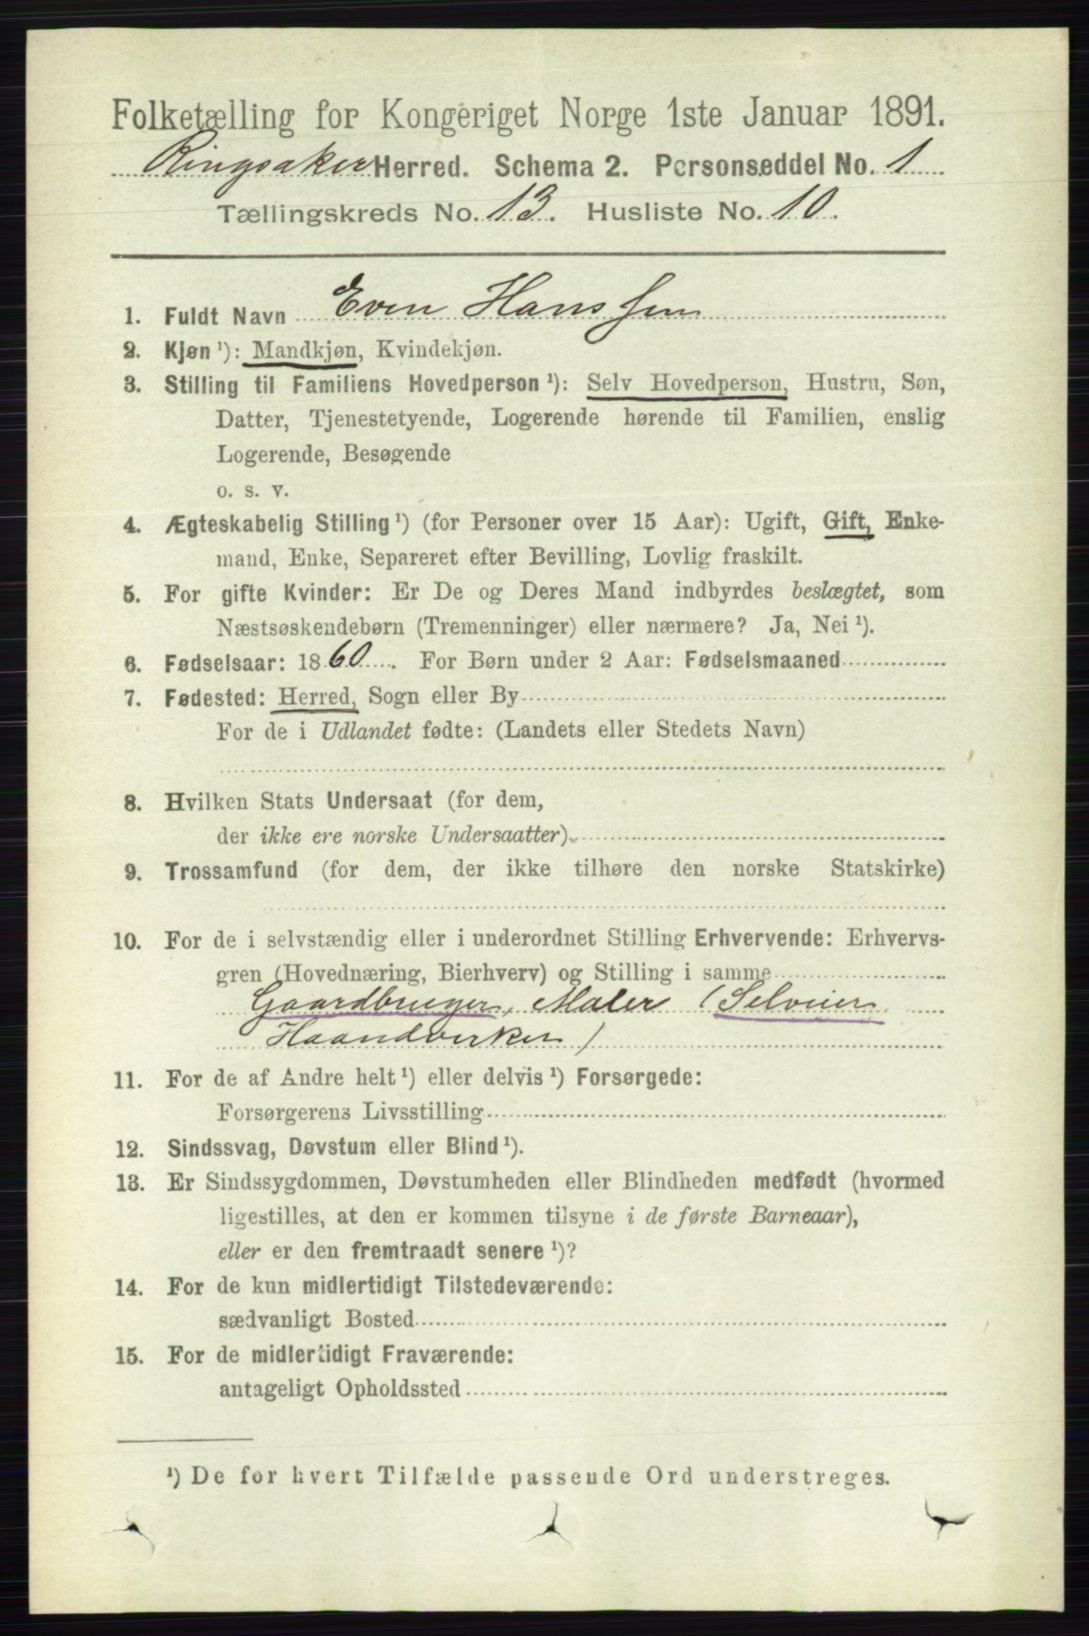 Folketælling for Kongeriget Norge 1ste Januar 1891.
Ringsaker Herred. Schema 2. Personseddel No. 1
Tællingskreds No. 13. Husliste No. 10.
1. Fuldt Navn Even Hanssen
2. Kjøn ¹): Mandkjøn, Kvindekjøn.
3. Stilling til Familiens Hovedperson ¹): Selv Hovedperson, Hustru, Søn,
Datter, Tjenestetyende, Logerende hørende til Familien, enslig
Logerende, Besøgende
o. s. v.
4. Ægteskabelig Stilling ¹) (for Personer over 15 Aar): Ugift, Gift, Enke-
mand, Enke, Separeret efter Bevilling, Lovlig fraskilt.
5. For gifte Kvinder: Er De og Deres Mand indbyrdes beslægtet, som
Næstsøskendebørn (Tremenninger) eller nærmere? Ja, Nei ¹).
6. Fødselsaar: 1860. For Børn under 2 Aar: Fødselsmaaned
7. Fødested: Herred, Sogn eller By
For de i Udlandet fødte: (Landets eller Stedets Navn)
8. Hvilken Stats Undersaat (for dem,
der ikke ere norske Undersaatter)
9. Trossamfund (for dem, der ikke tilhøre den norske Statskirke)
10. For de i selvstændig eller i underordnet Stilling Erhvervende: Erhvervs-
gren (Hovednæring, Bierhverv) og Stilling i samme
Gaardbruger, Maler (Selveier
Haandverker)
11. For de af Andre helt ¹) eller delvis ¹) Forsørgede:
Forsørgerens Livsstilling
12. Sindssvag, Døvstum eller Blind ¹).
13. Er Sindssygdommen, Døvstumheden eller Blindheden medfødt (hvormed
ligestilles, at den er kommen tilsyne i de første Barneaar),
eller er den fremtraadt senere ¹)?
14. For de kun midlertidigt Tilstedeværende:
sædvanligt Bosted
15. For de midlertidigt Fraværende:
antageligt Opholdssted
¹) De for hvert Tilfælde passende Ord understreges.